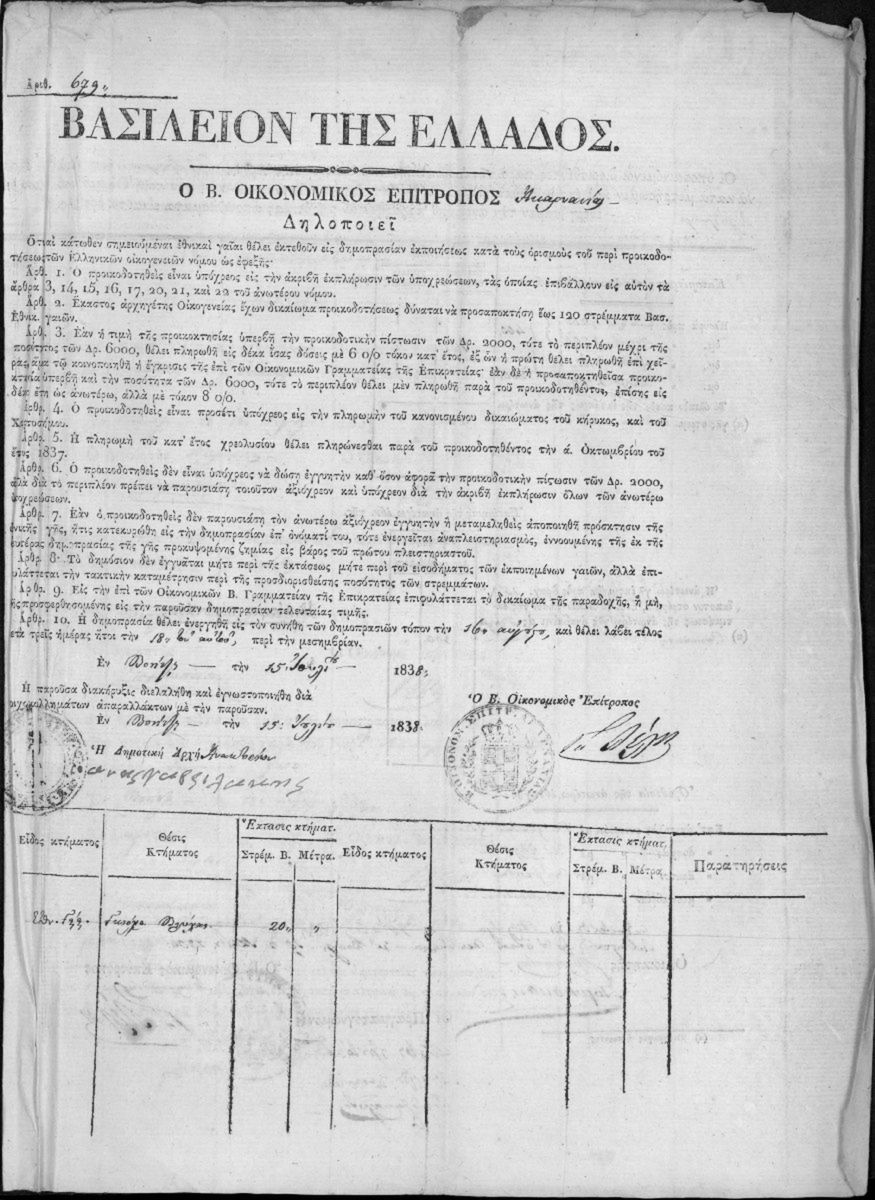 Ἀριθ. 679
ΒΑΣΙΛΕΙΟΝ ΤΗΣ ΕΛΛΑΔΟΣ.
Ο Β. ΟΙΚΟΝΟΜΙΚΟΣ ΕΠΙΤΡΟΠΟΣ Ἀκαρνανίας
Δηλοποιεῖ
Ὅτι αἱ κάτωθεν σημειούμεναι ἐθνικαὶ γαῖαι θέλει ἐκτεθοῦν εἰς δημοπρασίαν ἐκποιήσεως κατὰ τοὺς ὁρισμοὺς τοῦ περὶ προικοδο-
τήσεως τῶν Ἑλληνικῶν οἰκογενειῶν νόμου ὡς ἐφεξῆς·
Ἄρθ. 1. Ὁ προικοδοτηθεὶς εἶναι ὑπόχρεος εἰς τὴν ἀκριβῆ ἐκπλήρωσιν τῶν ὑποχρεώσεων, τὰς ὁποίας ἐπιβάλλουν εἰς αὐτὸν τὰ
ἄρθρα 3, 14, 15, 16, 17, 20, 21, καὶ 22 τοῦ ἀνωτέρω νόμου.
Ἄρθ. 2. Ἕκαστος ἀρχηγέτης Οἰκογενείας ἔχων δικαίωμα προικοδοτήσεως δύναται νὰ προσαποκτήσῃ ἕως 120 στρέμματα Βασ.
Ἐθνικ. γαιῶν.
Ἄρθ. 3. Ἐὰν ἡ τιμὴ τῆς προικοκτησίας ὑπερβῇ τὴν προικοδοτικὴν πίστωσιν τῶν Δρ. 2000, τότε τὸ περιπλέον μέχρι τῆς
ποσότητος τῶν Δρ. 6000, θέλει πληρωθῆ εἰς δέκα ἴσας δόσεις μὲ 6 0/0 τόκον κατ' ἔτος, ἐξ ὧν ἡ πρώτη θέλει πληρωθῆ ἐπὶ χεῖ-
ρας, ἅμα τῷ κοινοποιηθῇ ἡ ἔγκρισις τῆς ἐπὶ τῶν Οἰκονομικῶν Γραμματείας τῆς Ἐπικρατείας· ἐὰν δὲ ἡ προσαποκτηθεῖσα προικο-
κτησία ὑπερβῇ καὶ τὴν ποσότητα τῶν Δρ. 6000, τότε τὸ περιπλέον θέλει μὲν πληρωθῆ παρὰ τοῦ προικοδοτηθέντος, ἐπίσης εἰς
δέκα ἔτη ὡς ἀνωτέρω, ἀλλὰ μὲ τόκον 8 0/0.
Ἄρθ. 4. Ὁ προικοδοτηθεὶς εἶναι προσέτι ὑπόχρεος εἰς τὴν πληρωμὴν τοῦ κανονισμένου δικαιώματος τοῦ κήρυκος, καὶ τοῦ
Χαρτοσήμου.
Ἄρθρ. 5. Ἡ πληρωμὴ τοῦ κατ' ἔτος χρεολυσίου θέλει πληρώνεσθαι παρὰ τοῦ προικοδοτηθέντος τὴν ά. Ὀκτωμβρίου τοῦ
ἔτους 1837.
Ἄρθρ. 6. Ὁ προικοδοτηθεὶς δὲν εἶναι ὑπόχρεος νὰ δώσῃ ἐγγυητὴν καθ' ὅσον ἀφορᾷ τὴν προικοδοτικὴν πίστωσιν τῶν Δρ. 2000,
ἀλλὰ διὰ τὸ περιπλέον πρέπει νὰ παρουσιάσῃ τοιοῦτον ἀξιόχρεον καὶ ὑπόχρεον διὰ τὴν ἀκριβῆ ἐκπλήρωσιν ὅλων τῶν ἀνωτέρω
ὑποχρεώσεων.
Ἄρθρ. 7. Ἐὰν ὁ προικοδοτηθεὶς δὲν παρουσιάσῃ τὸν ἀνωτέρω ἀξιόχρεον ἐγγυητὴν ἢ μεταμεληθεὶς ἀποποιηθῇ πρόσκτησιν τῆς
ἐθνικῆς γῆς, ἥτις κατεκυρώθη εἰς τὴν δημοπρασίαν ἐπ' ὀνόματί του, τότε ἐνεργεῖται ἀναπλειστηριασμὸς, ἐννοουμένης τῆς ἐκ τῆς
δευτέρας δημοπρασίας τῆς γῆς προκυψομένης ζημίας εἰς βάρος τοῦ πρώτου πλειστηριαστοῦ.
Ἄρθρ. 8. Τὸ δημόσιον δὲν ἐγγυᾶται μήτε περὶ τῆς ἐκτάσεως μήτε περὶ τοῦ εἰσοδήματος τῶν ἐκποιημένων γαιῶν, ἀλλὰ ἐπι-
φυλάττεται τὴν τακτικὴν καταμέτρησιν περὶ τῆς προσδιορισθείσης ποσότητος τῶν στρεμμάτων.
Ἄρθρ. 9. Εἰς τὴν ἐπὶ τῶν Οἰκονομικῶν Β. Γραμματείαν τῆς Ἐπικρατείας ἐπιφυλάττεται τὸ δικαίωμα τῆς παραδοχῆς, ἢ μὴ,
τῆς προσφερθησομένης εἰς τὴν παροῦσαν δημοπρασίαν τελευταίας τιμῆς.
Ἄρθρ. 10. Ἡ δημοπρασία θέλει ἐνεργηθῆ εἰς τὸν συνήθη τῶν δημοπρασιῶν τόπον τὴν 16ην αὐγούστου, καὶ θέλει λάβει τέλος
μετὰ τρεῖς ἡμέρας ἤτοι τὴν 18ην τοῦ αὐτοῦ, περὶ τὴν μεσημβρίαν.
Ἐν Βονίτζῃ τὴν 15 Ἰουλίου 1838.
Ἡ παροῦσα διακήρυξις διελαλήθη καὶ ἐγνωστοποιήθη διὰ
τοιχοκολλημάτων ἀπαραλλάκτων μὲ τὴν παροῦσαν.
Ἐν Βονίτζῃ τὴν 15: Ἰουλίου 1838.
Ὁ Β. Οἰκονομικὸς Ἐπίτροπος
Ἡ Δημοτικὴ Ἀρχὴ Ἀνακτορίου
Εἶδος κτήματος
Θέσις Κτήματος
Ἔκτασις κτήματ.
Στρέμ. Β. Μέτρα.
Εἶδος κτήματος
Θέσις Κτήματος
Ἔκτασις κτήματ.
Στρέμ. Β. Μέτρα.
Παρατηρήσεις
Ἐθν. γῆ. 20 "